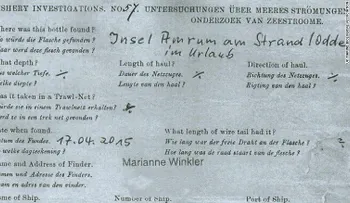 SHERY INVESTIGATIONS. No 57. UNTERSUCHUNGEN ÜBER MEERES STRÖMUNGE
ONDERZOEK VAN ZEESTROOME.
here was this bottle found?
o würde die Flasche gefunden?
aar werd deze flesch gevonden?
Insel Amrum am Strand/Odde
im Urlaub
hat depth?
s welcher Tiefe.
elke diepte?
Length of haul?
Dauer des Netzzuges.
Lengte van den haal?
Direction of haul.
Richtung des Netzzuges?
Rigting van den haal?
as it taken in a Trawl-Net?
ürde sie in einem Trawlnetz erhalten?
erd ze in een trek net gevonden?
ate when found.
atum des Fundes.
p welke dagteekening?
17.04.2015
What length of wire tail had it?
Wie lang war der freie Draht an der Flasche?
Hoe lang was de raad staart van de flesche?
?
ame and Address of Finder.
amen und Adresse des Finders.
am en adres van den vinder.
Marianne Winkler
me of Ship.
Number of Ship.
Port of Ship.